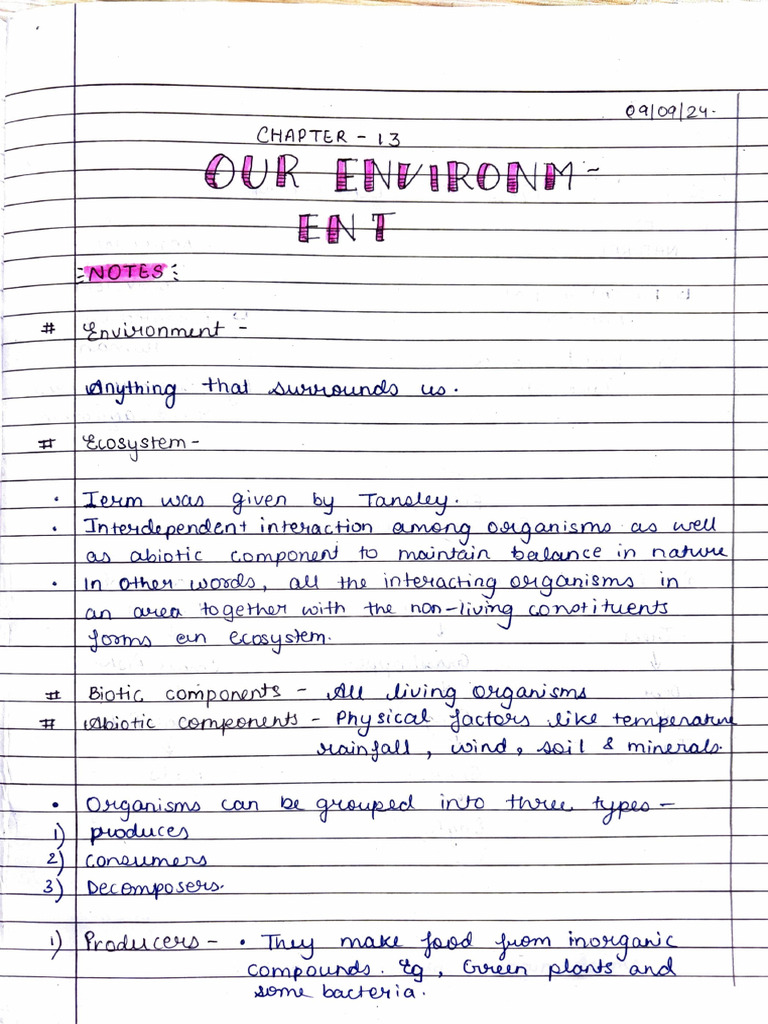 09/09/24.
CHAPTER - 13
OUR ENVIRONM -
ENT
NOTES
# Environment -
Anything that surrounds us.
# Ecosystem -
• Term was given by Tansley.
• Interdependent interaction among organisms as well
as abiotic component to maintain balance in nature
• In other words, all the interacting organisms in
an area together with the non-living constituents
forms an ecosystem.
# Biotic components - All living organisms
# Abiotic components - Physical factors like temperature
rainfall, wind, soil & minerals.
• Organisms can be grouped into three types -
1) produces
2) consumers
3) Decomposers.
1) Producers - • They make food from inorganic
compounds. Eg, Green plants and
some bacteria.